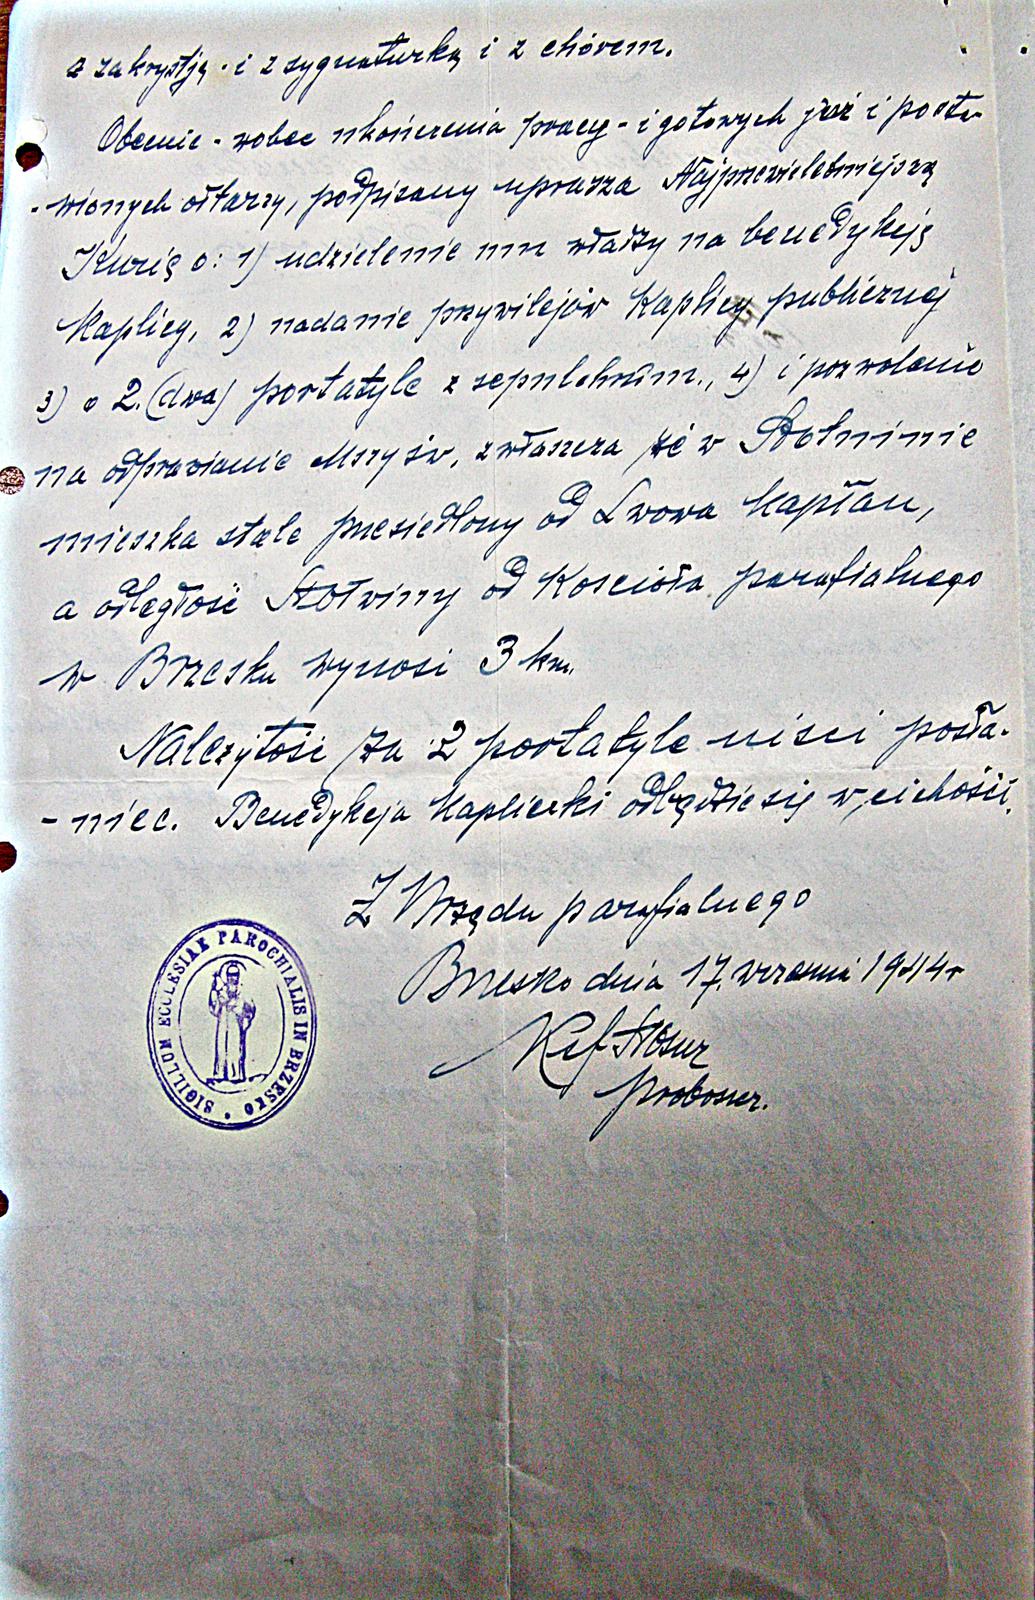 z zakrystją - i z sygnaturką i z chórem.
Obecnie - wobec ukończenia pracy - i gotowych już i posta-
- wionych ołtarzy, podpisany uprasza Najprzewielebniejszą
Kurię o: 1) udzielenie mu władzy na benedykcję
Kaplicy, 2) nadanie przywilejów Kaplicy publicznej
3) o 2. (dwa) portatyle z sepulchrum., 4) i pozwolenie
na odprawianie Mszy św, zwłaszcza że w Słotwinie
mieszka stale przesiedlony od Lwowa Kapłan,
a odległość Słotwiny od Kościoła parafialnego
w Brzesku wynosi 3 km.
Należytość za 2 portatyle uiści posła-
- niec. Benedykcja Kapliczki odbędzie się w cichości.
Z Urzędu parafialnego
Brzesko dnia 17. września 1944 r
Proboszcz.
SIGILLUM ECCLESIAE PAROCHIALIS IN BRZESKO